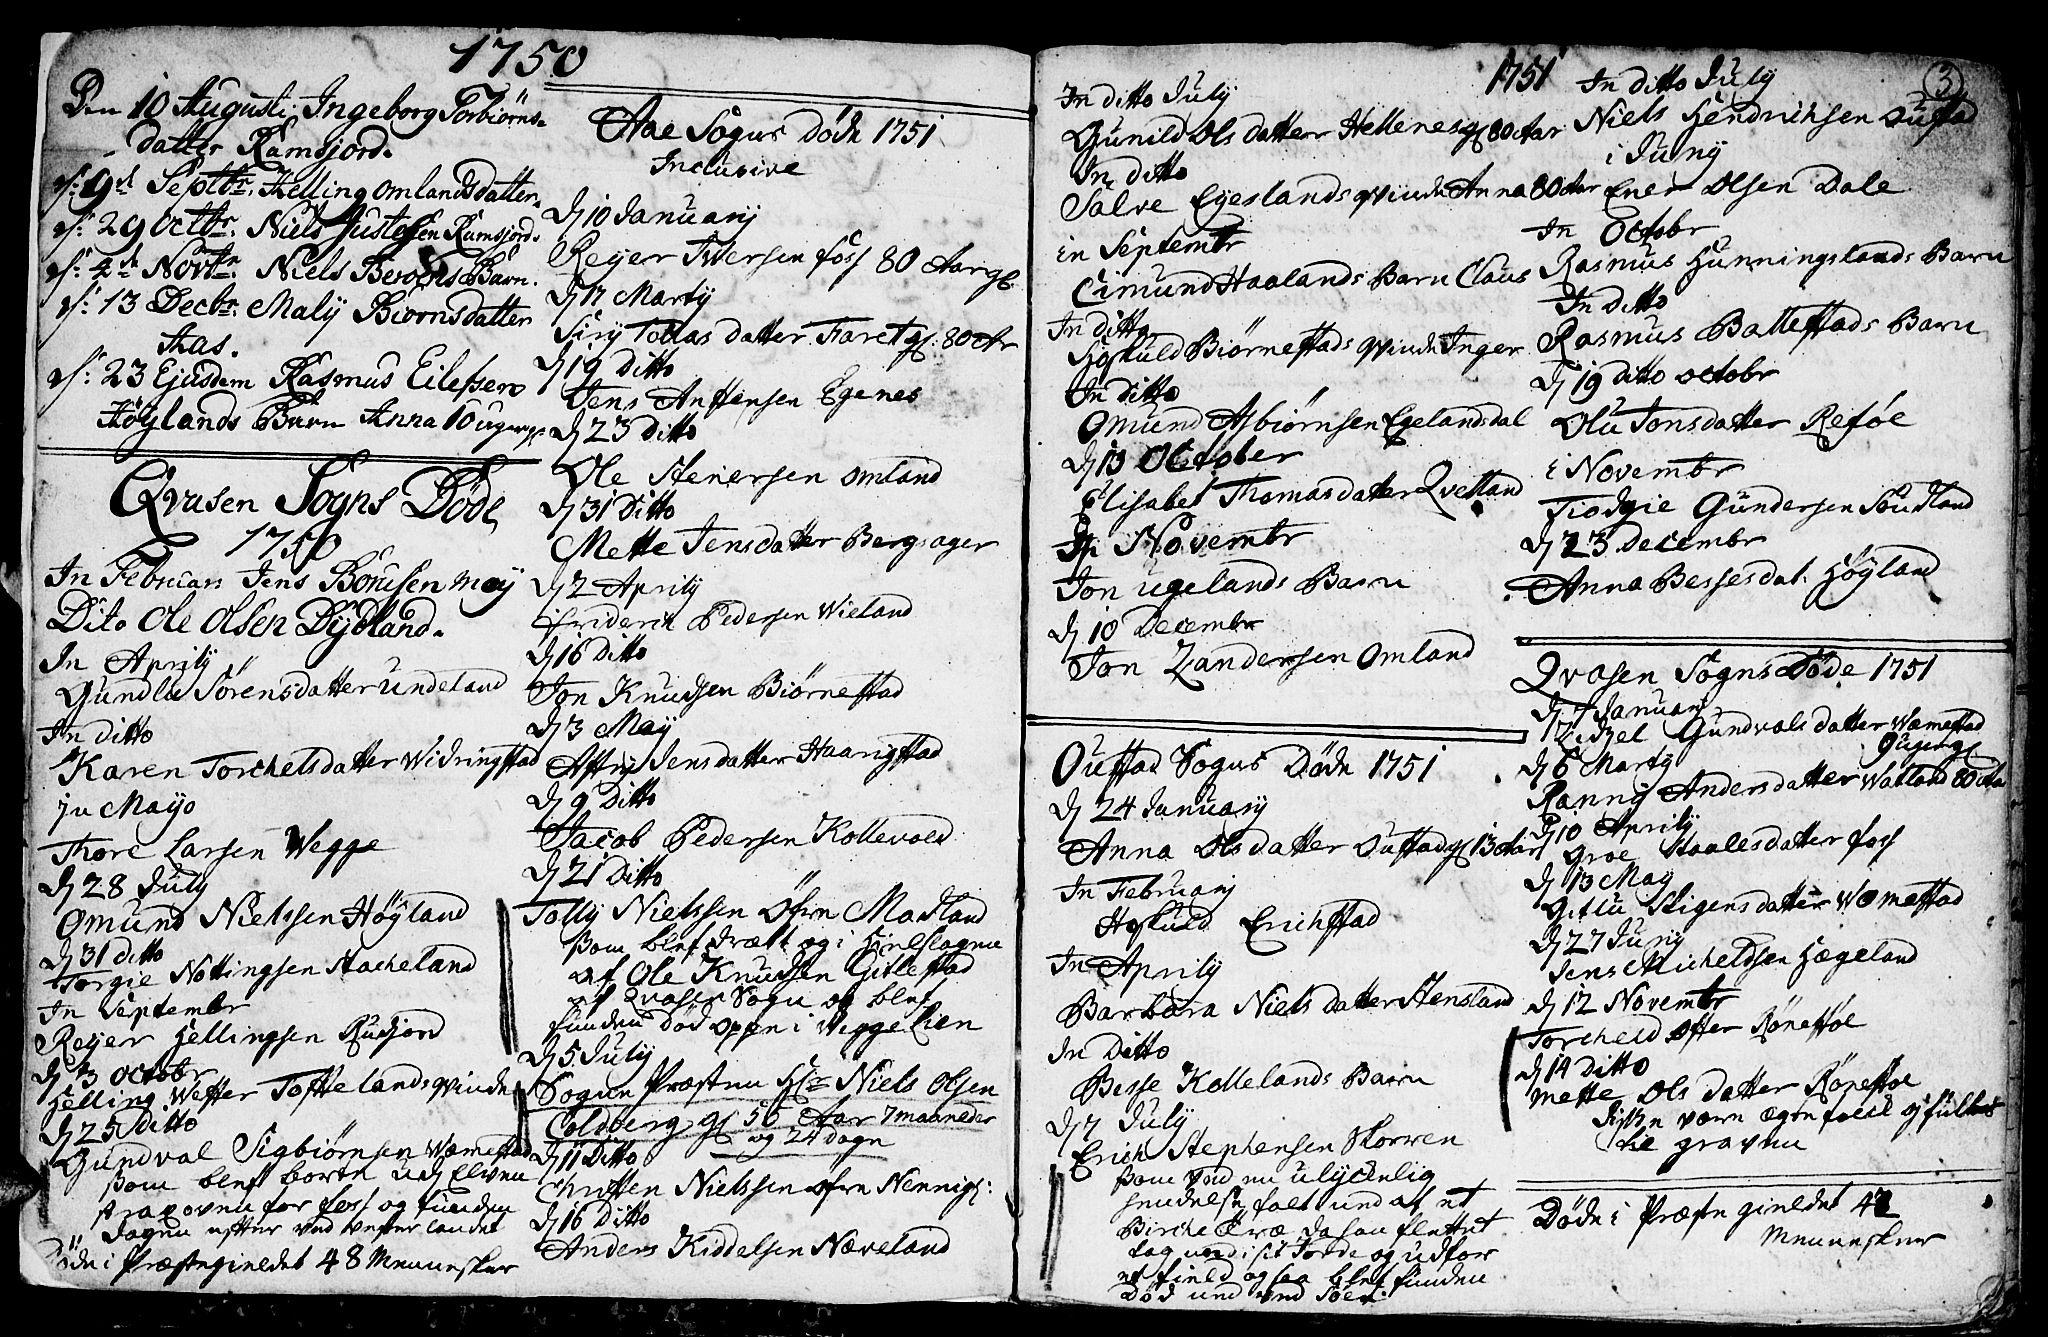 1750
Den 10 Augusti Ingeborg Torbiørns-
datter Ramsjord.
d: 9d Septbr. Helling omlandsdatter.
d: 29 Octbr. Niels Justesen Ramsjord.
d: 4de Novbr. Niels Barn.
d: 13 Decbr. Maly Biørnsdatter
Aas.
d: 23 Ejusdem Rasmus Eilefsen
Høylands Barn Anna 10 uger gl.
Qvasen Sogns Døde
1750
In Februari Jens Bousen may
Dito Ole Olsen Dydland.
In Aprily
Gundla Sørensdatter undeland
In ditto
Karen Torchelsdatter Widringstad
in Mayo
Thore Larsen Wegge
D 28 July
Omund Nielssen Høyland
D 31 ditto
Torgie Nottingsen Stacheland
In Septembr
Reyer Hellingsen Rudjord
D 3 octobr
Helling Wester Toftelands qvinde
D 25 Ditto
Gundval Sigbiørnsen Wæmestad
som blef borte udj Elven
for foss og funden
dagen efter ved Vesterlandet
Døde i Præstegieldet 48 Mennesker
Aae Sogns Døde 1751
Inclusive
D 10 January
Reyer Iversen foss 80 Aar gl.
D 17 Marty
Siry Tobias datter Faret gl: 80 Ar
D 19 Ditto
Jens Anstensen Egenes
D 23 Ditto
Ole Stenersen omland
D 31 Ditto
Mette Jensdatter Bergsager
D 2 Aprily
friderich Pedersen Wieland
D 16 Ditto
Jon Knudsen Biørnestad
D 3 May
Astri Jensdatter Haarigstad
D 9 Ditto
Jacob Pedersen Kollevold
D 21 Ditto
Tolly Nielssen øfre Madland
som blef dræbt og i hielslagne
af Ole Knudsen Gitlestad
af Qvasen Sogn og blef
funden Død oppen i Weggelien
D 5 July
Sogne Præsten Hr Niels Olsen
Coldberg gl 56 Aar 7 maaneder
og 24 dage
D 11 Ditto
Christen Nielssen øfre Nennigs:
D 16 Ditto
Anders Kiddelsen Næveland
1751
3
In ditto July
Gunild Ols datter Hellenes gl 80 Aar
In ditto
Salve Egeslands qvinde Anna 80 Aar
in Septembr
Eimund Haalands Barn Claus
In ditto
Høskuld Biørnestads qvinde Inger
In Ditto
Omund Asbiørnsen Egelandsdal
D 13 October
Elisabet Thomasdatter Qvelland
In Novembr
Jon ugelands Barn
D 10 Decembr
Jon Zandersen Omland
Oustad Sogns Døde 1751
D 24 January
Anna Olsdatter Oustad gl 13 Aar
In February
Høskuld Erichstad
In Aprily
Barbara Niels datter Stensland
In Ditto
Besse Kollelands Barn
D 7 July
Erich Stephensen Skorven
som ved en ulyckelig
hendelse falt ned af et
Birche Træ da han flettet
tag ved i sit Jorde og udfor
et field og saa blef funden
Død ned ved Søen.
In ditto July
Niels Hendrichsen Oustad
i Juny
Ener Olsen Dale
In Octobr
Rasmus Hunningslands Barn
In Ditto
Rasmus Ballestads Barn
D 19 Ditto octobr
Olu Jonsdatter Refsøe
i Novembr
Tiodgie Gundersen Soudland
D 23 Decembr
Anna Bessesdat. Høyland
Qvasen Sogns Døde 1751
D 7 January
Zidzel Gundvals datter Wæmestad
9 uger gl
D 6 Marty
Ranny Andersdatter Watland 80 Aar
D 10 Aprily
Groe Staalesdatter foss
D 13 May
Gitlu Stigensdatter Womestad
D 27 Juny
Jens Micheldsen Hægeland
D 12 Novembr
Torcheld ofter Rønesløe
D 14 Ditto
Mette Ols datter Rønesløe
disse væren ægte folck og fultes
til graven
Døde i Præste gieldet 42
Mennesker